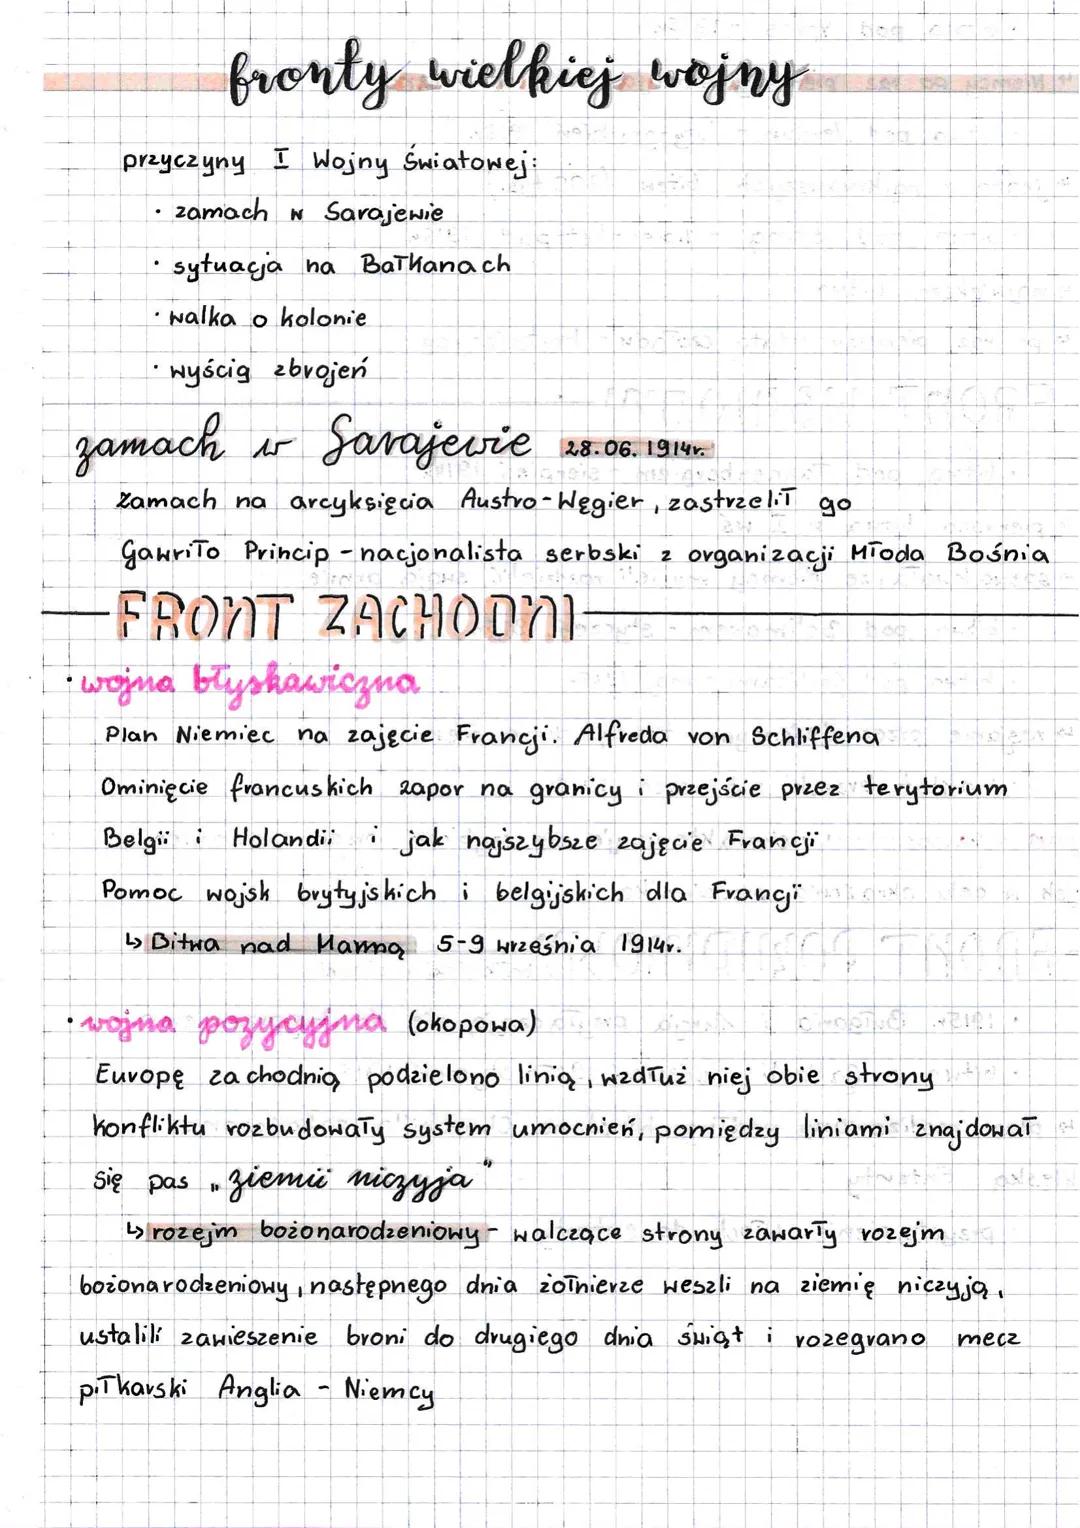 fronty wielkiej wojny
przyczyny I Wojny Światowej:
· zamach w Sarajewie
· sytuacja na Bałkanach
· walka o kolonie
· wyścig zbrojeń
zamach w Sarajewie 28.06.1914r.
Zamach na arcyksięcia Austro-Węgier, zastrzelił go
Gawriło Princip - nacjonalista serbski z organizacji Młoda Bośnia
FRONT ZACHODNI
· wojna błyskawiczna
Plan Niemiec na zajęcie Francji. Alfreda von Schliffena
Ominięcie francuskich zapor na granicy i przejście przez terytorium
Belgii i Holandii i jak najszybsze zajęcie Francji
Pomoc wojsk brytyjskich i belgijskich dla Francji
↳ Bitwa nad Marną 5-9 września 1914r.
· wojna pozycyjna (okopowa)
Europę zachodnią podzielono linią, wzdłuż niej obie strony
konfliktu rozbudowały system umocnień, pomiędzy liniami znajdował
się pas „ziemii niczyja"
↳ rozejm bożonarodzeniowy - walczące strony zawarły rozejm
bożonarodzeniowy, następnego dnia żołnierze weszli na ziemię niczyją,
ustalili zawieszenie broni do drugiego dnia świąt i rozegrano mecz
piłkarski Anglia - Niemcy